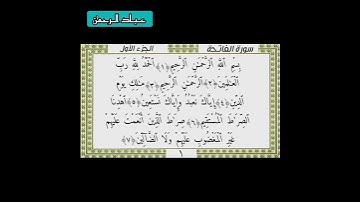 عباد الرحمن
سورة الفاتحة الجزء الأول
بِسْمِ اللَّهِ الرَّحْمَٰنِ الرَّحِيمِ ﴿١﴾ الْحَمْدُ لِلَّهِ رَبِّ
الْعَالَمِينَ ﴿٢﴾ الرَّحْمَٰنِ الرَّحِيمِ ﴿٣﴾ مَالِكِ يَوْمِ
الدِّينِ ﴿٤﴾ إِيَّاكَ نَعْبُدُ وَإِيَّاكَ نَسْتَعِينُ ﴿٥﴾ اهْدِنَا
الصِّرَاطَ الْمُسْتَقِيمَ ﴿٦﴾ صِرَاطَ الَّذِينَ أَنْعَمْتَ عَلَيْهِمْ
غَيْرِ الْمَغْضُوبِ عَلَيْهِمْ وَلَا الضَّالِّينَ ﴿٧﴾
١